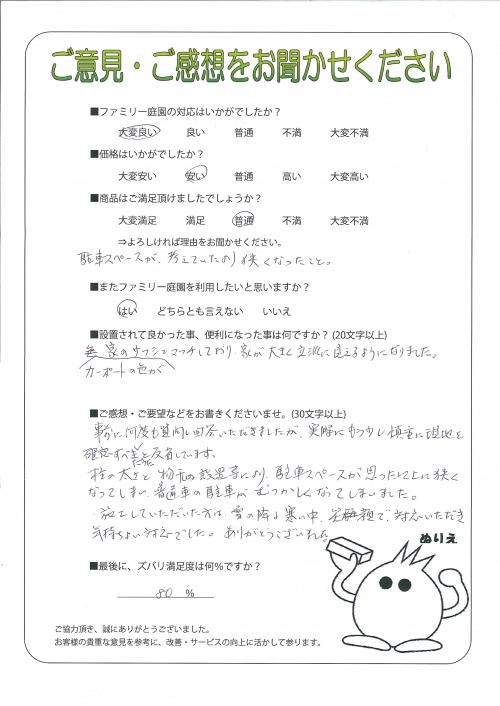 ご意見・ご感想をお聞かせください
■ファミリー庭園の対応はいかがでしたか？
大変良い 良い 普通 不満 大変不満
■価格はいかがでしたか？
大変安い 安い 普通 高い 大変高い
■商品はご満足頂けましたでしょうか？
大変満足 満足 普通 不満 大変不満
⇒よろしければ理由をお聞かせください。
駐車スペースが、考えていたより狭くなったこと。
■またファミリー庭園を利用したいと思いますか？
はい どちらとも言えない いいえ
■設置されて良かった事、便利になった事は何ですか？(20文字以上)
家のサッシとマッチしており、家が大きく立派に見えるようになりました。
カーポートの色が
■ご感想・ご要望などをお書きくださいませ。(30文字以上)
事前に何度も質問し回答いただきましたが、実際にもう少し慎重に現地を
確認すべきだったと反省しています。
柱の太さと物置の設置等により、駐車スペースが思った以上に狭く
なってしまい、普通車の駐車がむつかしくなってしまいました。
施工していただいた方は、雪の降る寒い中、笑顔で、対応いただき
気持ちよい対応でした。ありがとうございました。
ぬりえ
■最後に、ズバリ満足度は何%ですか？
80 %
ご協力頂き、誠にありがとうございました。
お客様の貴重な意見を参考に、改善・サービスの向上に活かして参ります。